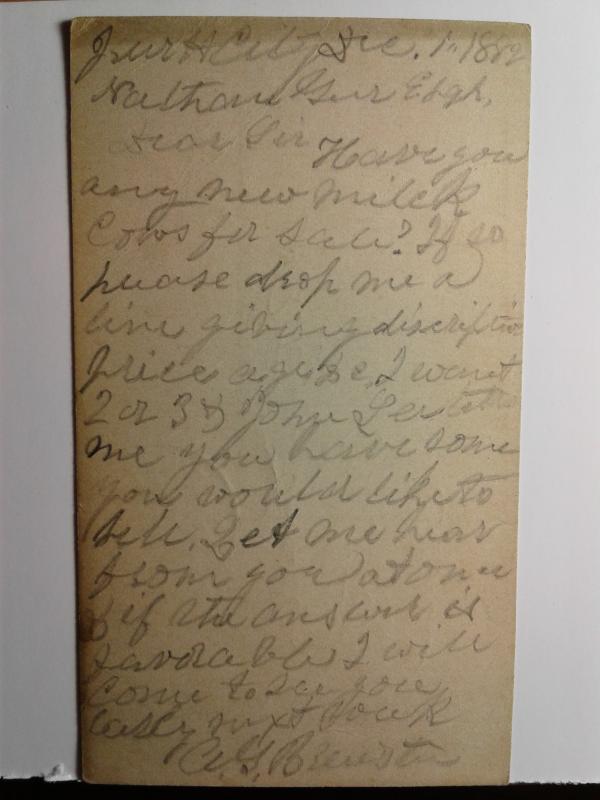 City Dec. 1, 1882
Nathan Esqr,
Dear Sir Have you
any new milck
Cows for sale? If so
please drop me a
line giving discription
price age &c, I want
2 or 3 & John
me you have some
you would like to
sell. Let me hear
from you at once
& if the answer is
favorable I will
come to see you
early next week
A. G. Brewster